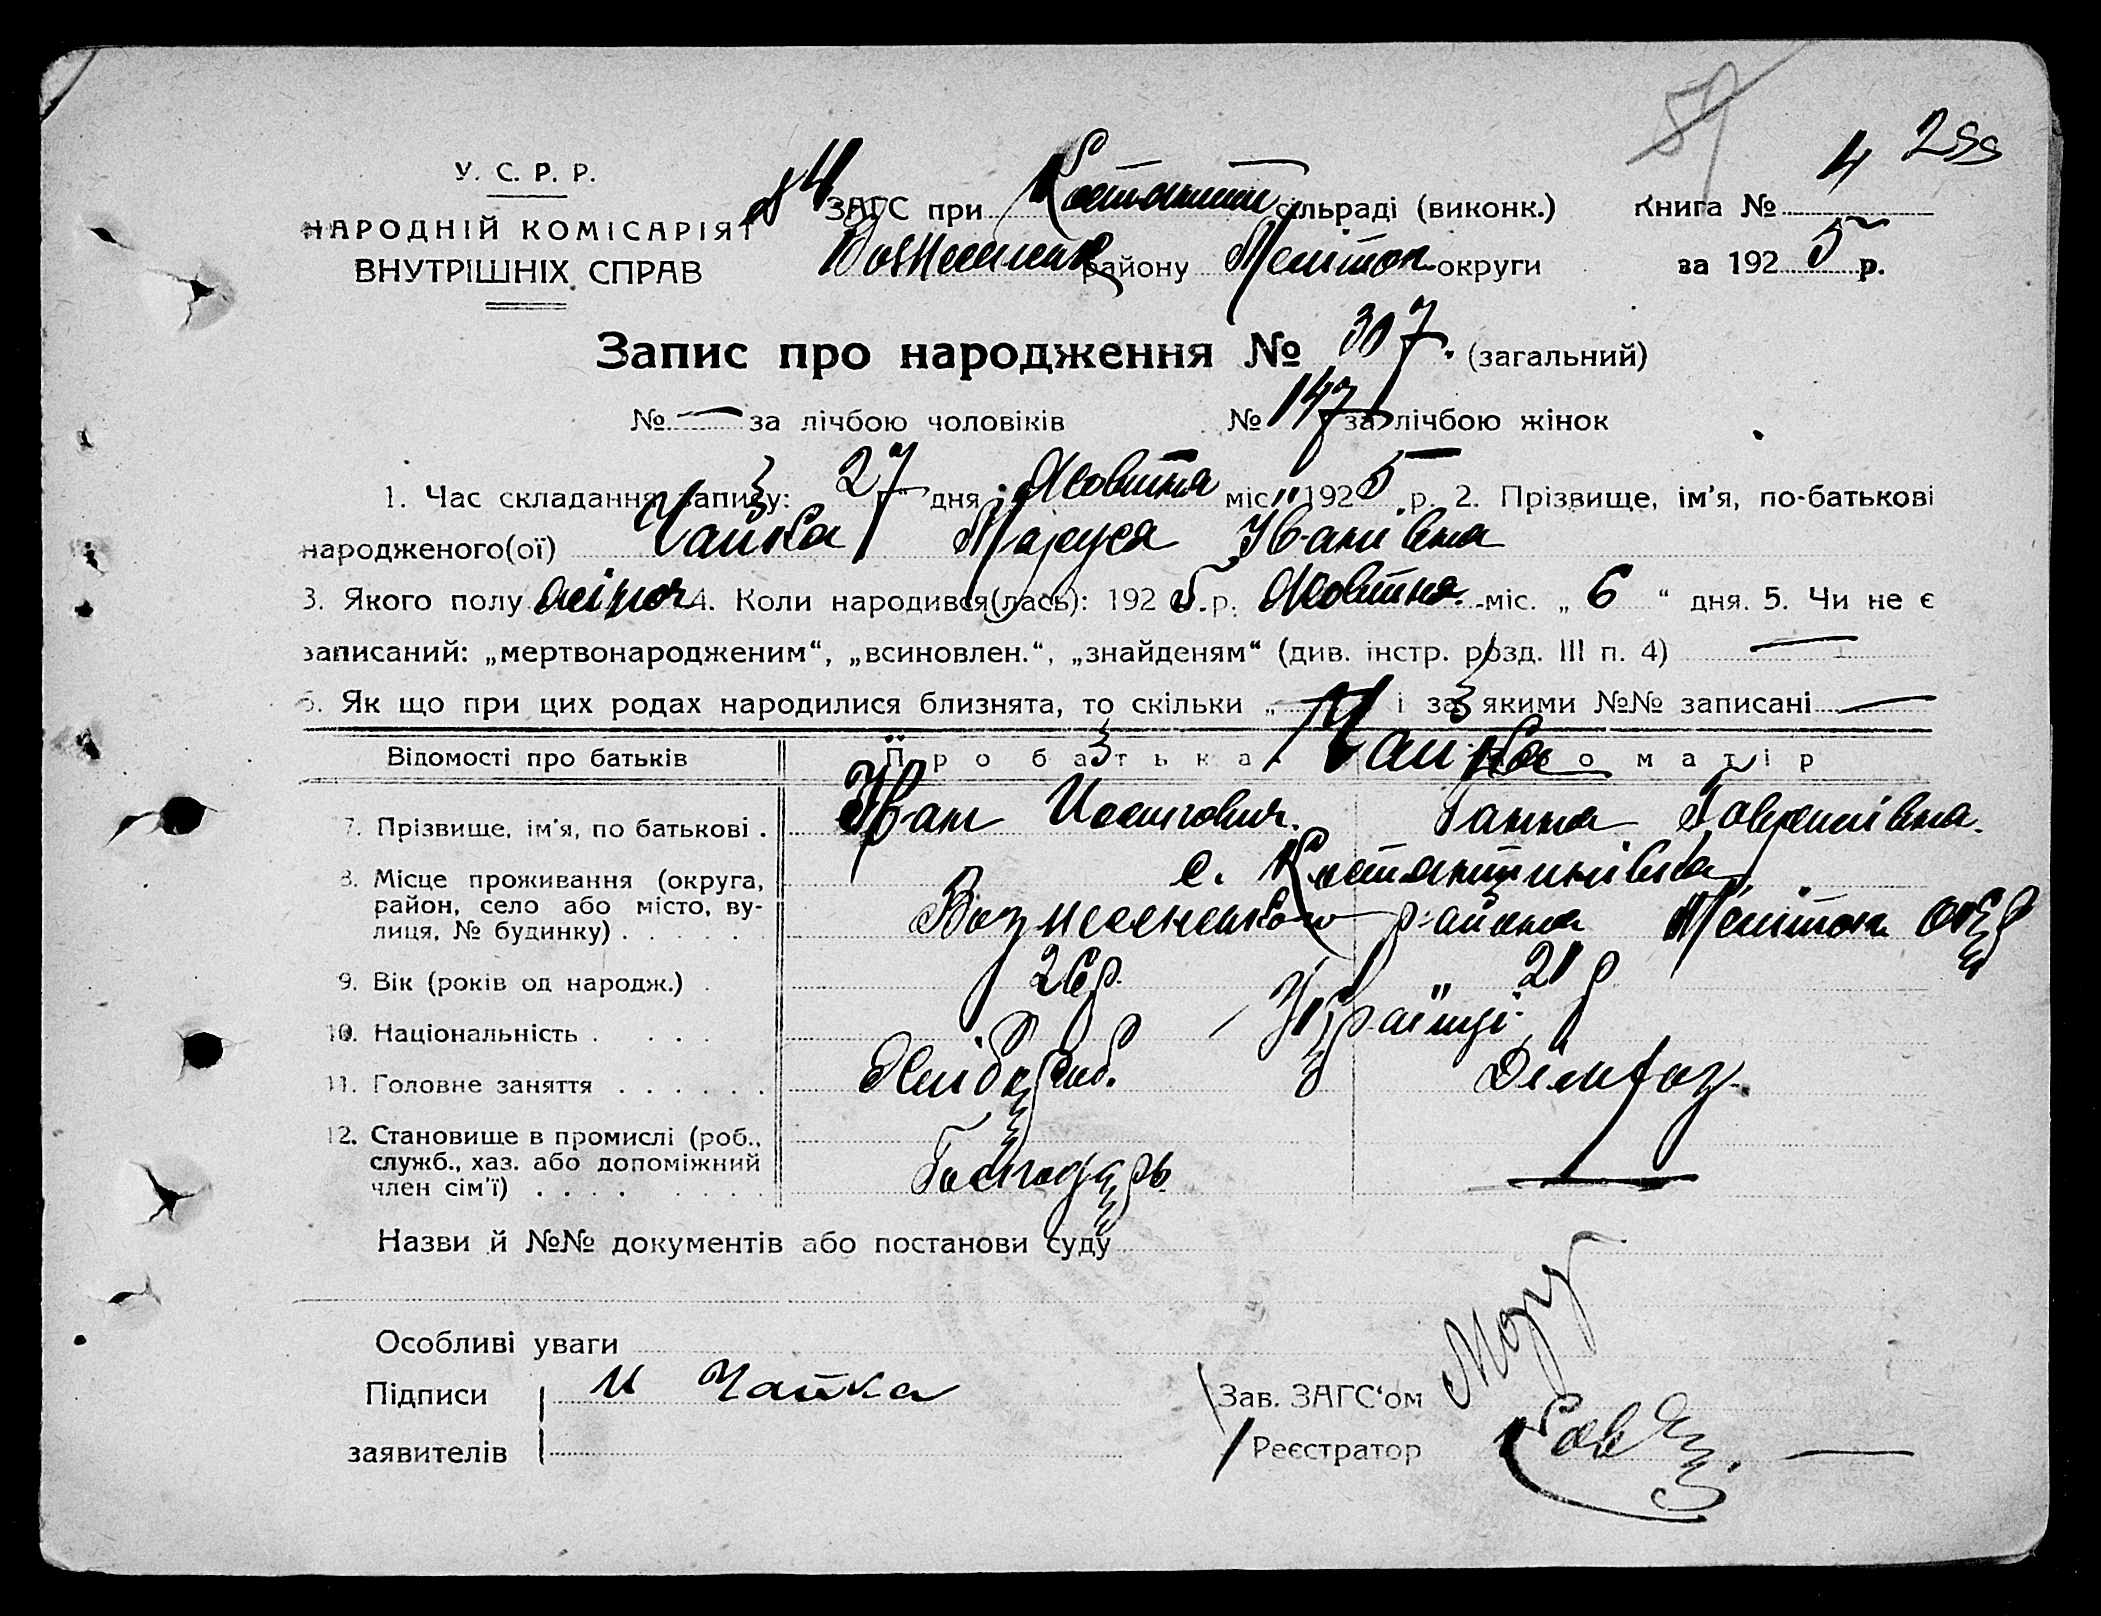 59
4 299
У. С. Р. Р.
НАРОДНІЙ КОМІСАРІЯТ
ВНУТРІШНІХ СПРАВ
ЗАГС при Костантин сільраді (виконк.) Книга № 4
Вознесенськ району Мелітоп округи за 192 5 р.
Запис про народження № 307. (загальний)
№ — за лічбою чоловіків № 147 за лічбою жінок
1. Час складання запису: 27 дня Жовтня міс. 192 5 р. 2. Прізвище, ім'я, по-батькові
народженого(ої) Чайка Маруся Іванівна
3. Якого полу жіноч 4. Коли народився(лась): 192 5 р. Жовтня міс. „ 6 “ дня. 5. Чи не є
записаний: „мертвонародженим“, „всиновлен.“, „знайденям“ (див. інстр. розд. III п. 4) —
6. Як що при цих родах народилися близнята, то скільки „ — і за якими №№ записані —
Відомості про батьків Про батька Чайка Про матір
7. Прізвище, ім'я, по батькові . Іван Йосипович. Ганна Гаврилівна.
8. Місце проживання (округа, с. Костянтинівка
район, село або місто, ву- Вознесенського району Мелітоп. окр
лиця, № будинку) . . . . .
9. Вік (років од народж.) . 26 р. 21 р
10. Національність . . . . Українці
11. Головне заняття . . . . . . Хлібороб. Дом. гоз.
12. Становище в промислі (роб.,
служб., хаз. або допоміжний Господарь —
член сім'ї) . . . . . . . .
Назви й №№ документів або постанови суду
Особливі уваги
Підписи И Чайка Зав. ЗАГС‘ом
заявителів Реєстратор —